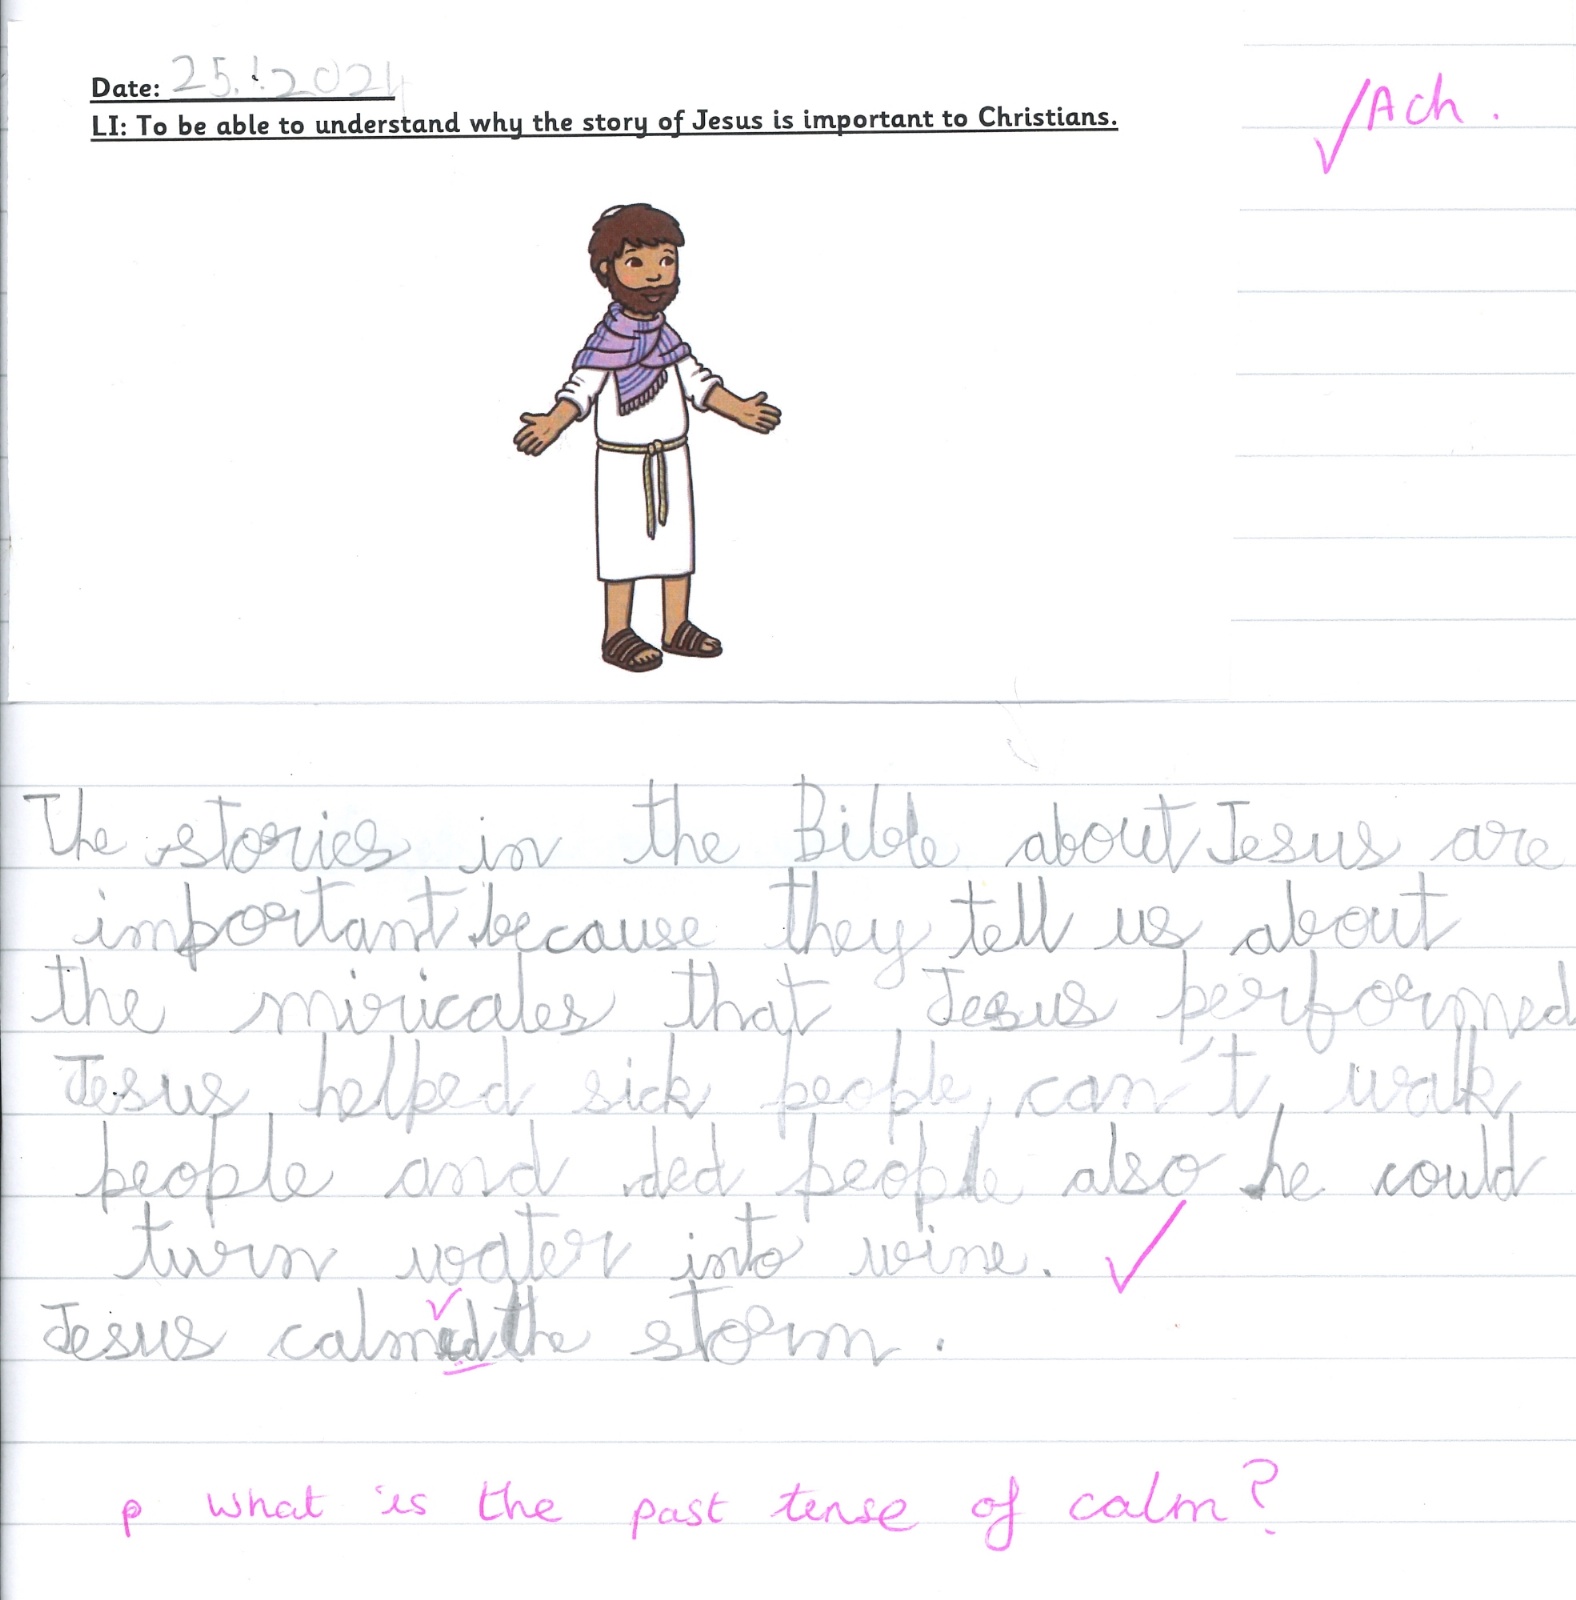 Date: 25.1.2024
LI: To be able to understand why the story of Jesus is important to Christians.
Ach.
The stories in the Bible about Jesus are
important because they tell us about
the miricales that Jesus performed
Jesus helped sick people, can't walk
people and ded people also he could
turn water into wine.
Jesus calmed the storm.
p what is the past tense of calm?